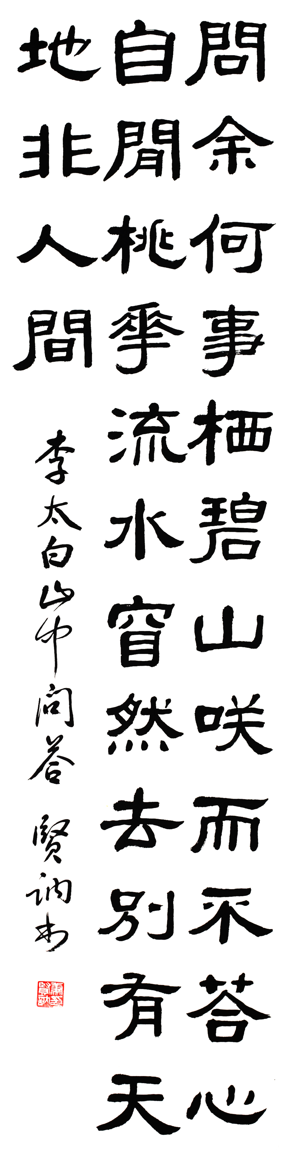 問余何事栖碧山咲而不荅心
自閒桃華流水窅然去別有天
地非人間
李太白山中问荅 賢訥书